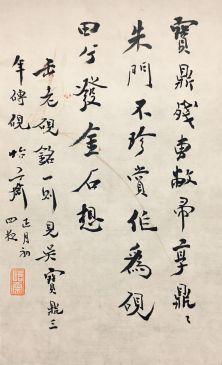 寶鼎殘專敝帚享鼎〻
朱門不珍賞作為硯
田兮發金石想
缶老硯銘一則見吳寶鼎三
年磚硯 怡
正月初
四夜